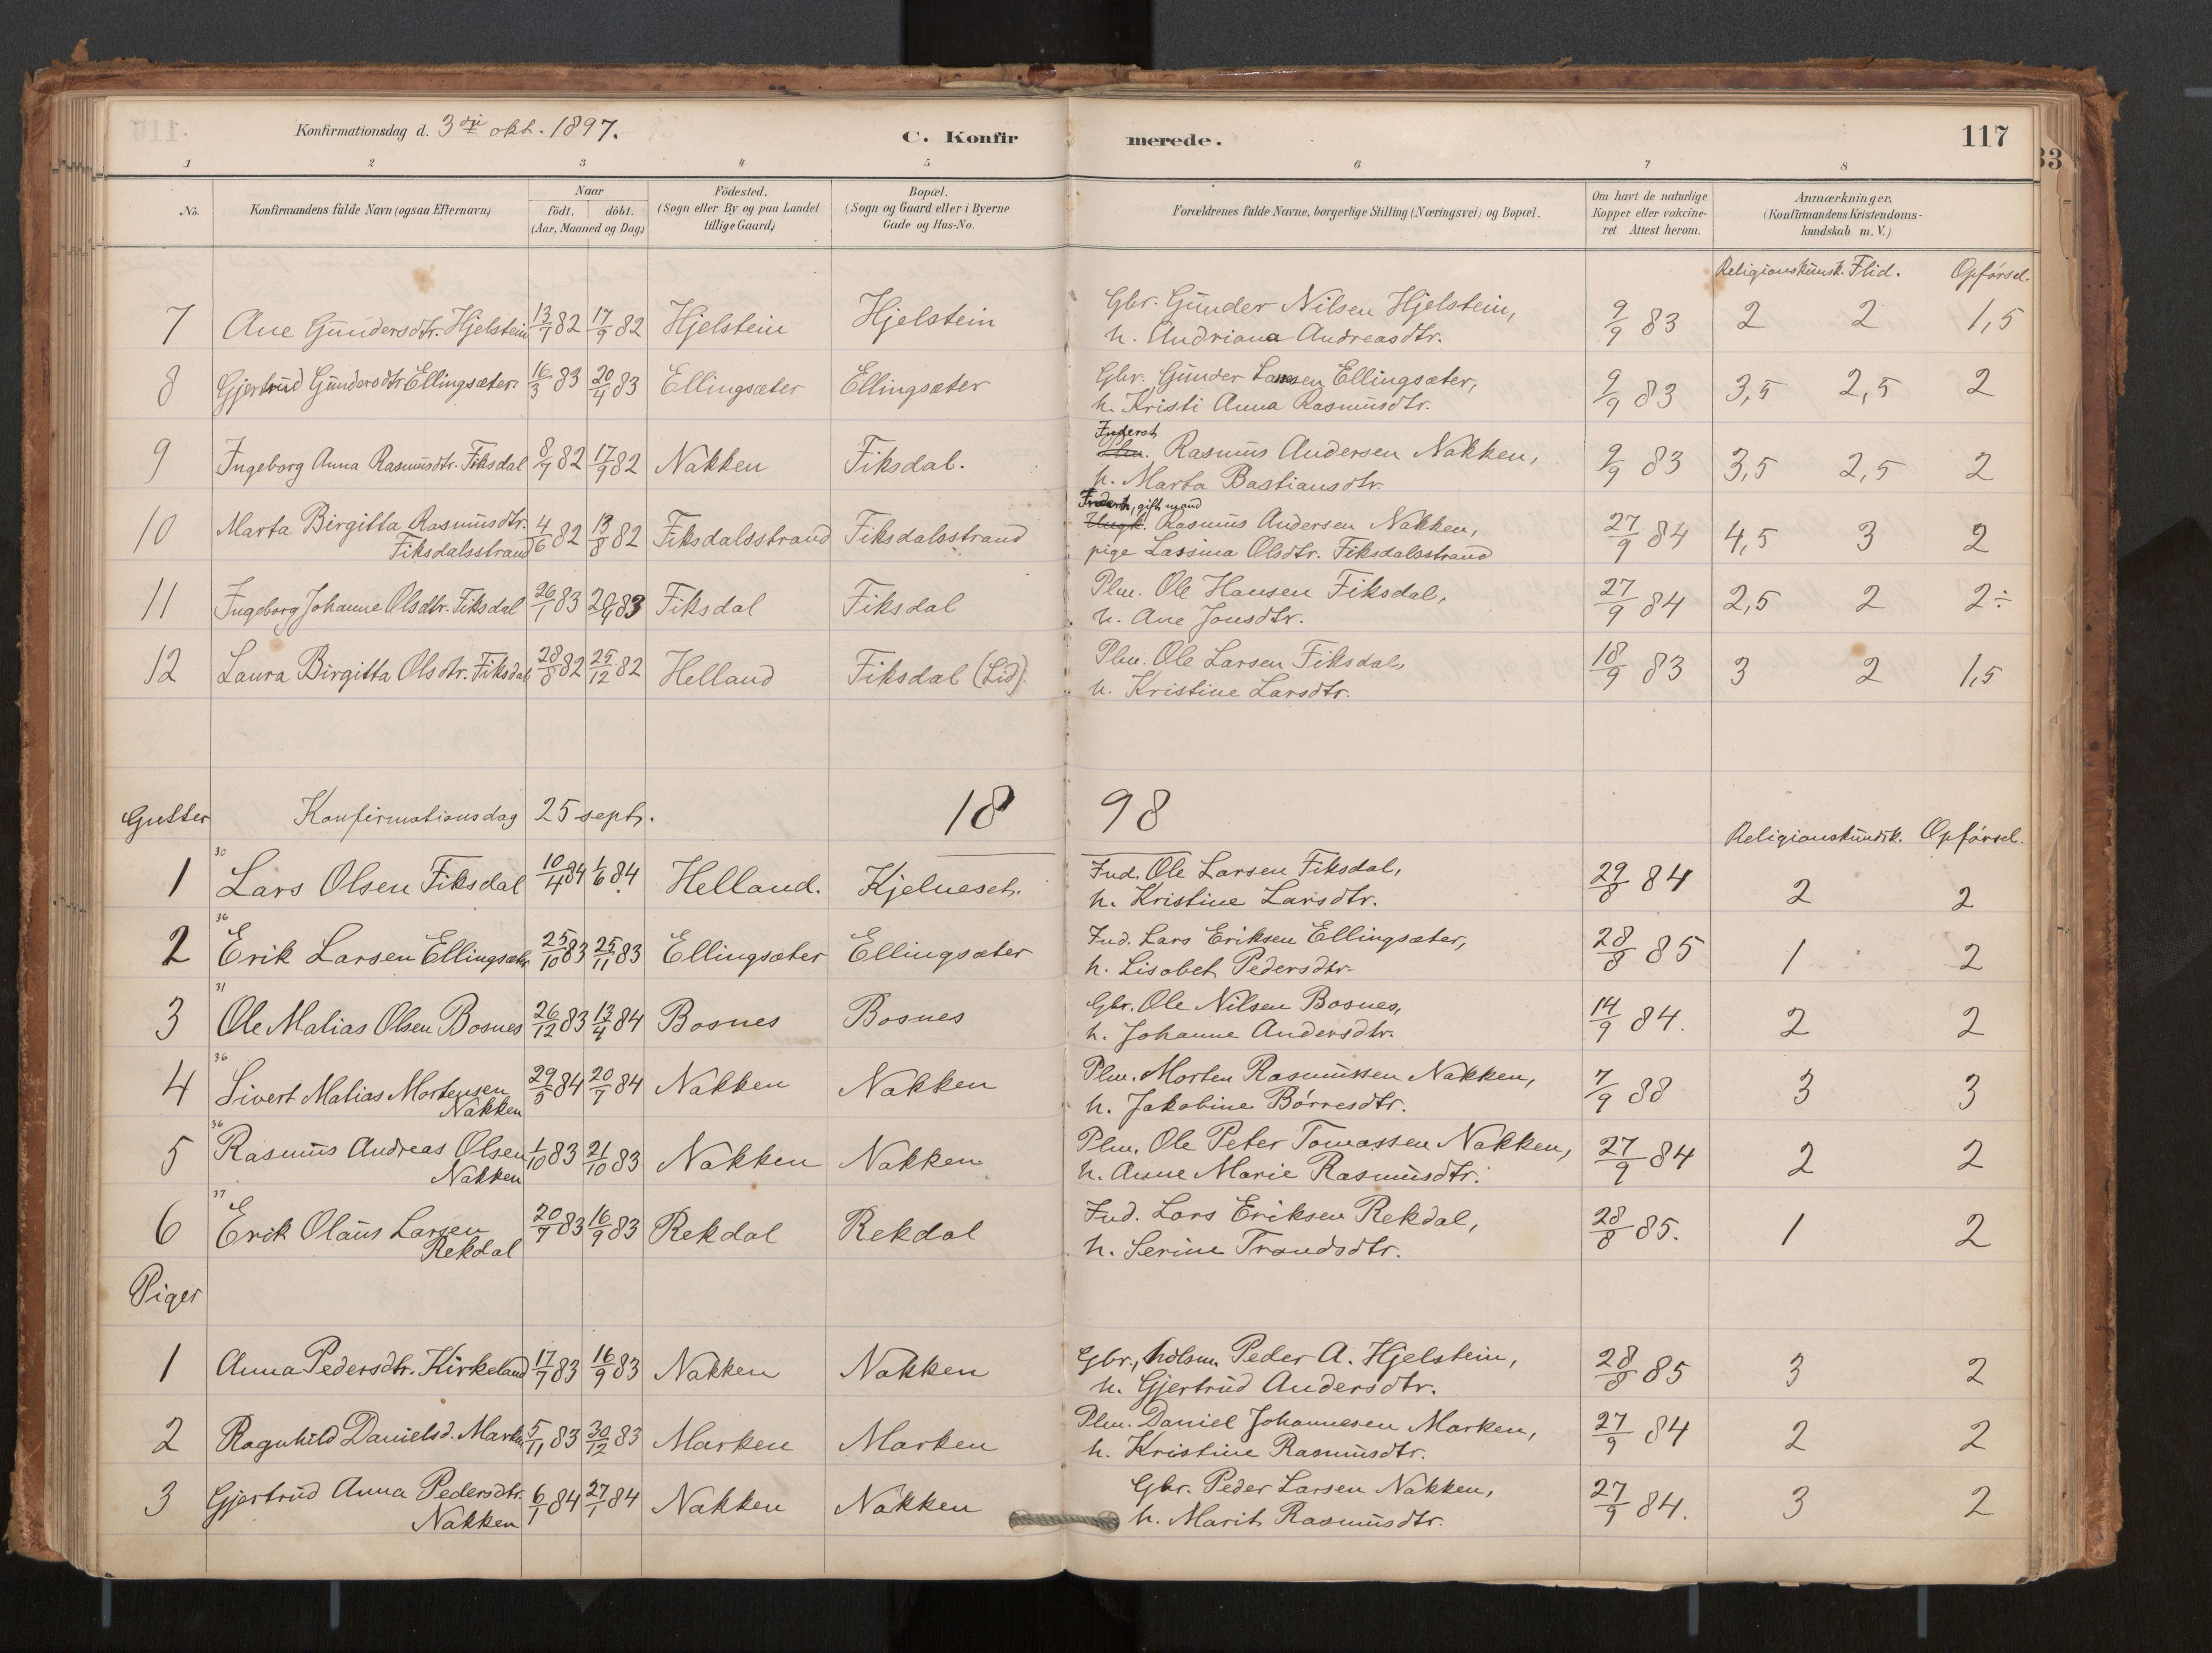 Konfirmationsdag d. 3die okt. 1897. C. Konfir merede. 117
33
1 2 3 4 5 6 7 8
No. Konfirmandens fulde Navn (ogsaa Efternavn) Naar födt. döbt. (Aar, Maaned og Dag) Födested. (Sogn eller By og paa Landet tillige Gaard) Bopæl. (Sogn og Gaard eller i Byerne Gade og Hus-No. Forældrenes fulde Navne, borgerlige Stilling (Næringsvei) og Bopæl. Om havt de naturlige Kopper eller vakcineret. Attest herom. Anmærkninger. (Konfirmandens Kristendomskundskab m. V.)
Religionskunsk. Flid. Opførsel.
7 Ane Gundersdtr. Hjelstein 13/7 82 17/9 82 Hjelstein Hjelstein Gbr. Gunder Nilsen Hjelstein, 9/9 83 2 2 1,5
h. Andriana Andreasdtr.
8 Gjertrud Gundersdtr Ellingsæter. 16/3 83 20/4 83 Ellingsæter Ellingsæter Gbr. Gunder Larsen Ellingsæter, 9/9 83 3,5 2,5 2
h. Kristi Anna Rasmusdtr.
Inderst
9 Ingeborg Anna Rasmusdtr. Fiksdal 8/7 82 17/9 82 Nakken Fiksdal. Plm. Rasmus Andersen Nakken, 9/9 83 3,5 2,5 2
h. Marta Bastiansdtr.
Inderst, gift mand
10 Marta Birgitta Rasmusdtr. 4/6 82 13/8 82 Fiksdalsstrand Fiksdalsstrand Ungk. Rasmus Andersen Nakken, 27/9 84 4,5 3 2
Fiksdalsstrand pige Lassina Olsdtr. Fiksdalsstrand
11 Ingeborg Johanne Olsdtr. Fiksdal 26/1 83 83 Fiksdal Fiksdal Plm. Ole Hansen Fiksdal, 27/9 84 2,5 2 2÷
h. Ane Jonsdtr.
12 Laura Birgitta Olsdtr. Fiksdal 28/8 82 25/12 82 Helland Fiksdal (Lid). Plm. Ole Larsen Fiksdal, 18/9 83 3 2 1,5
h. Kristine Larsdtr.
Gutter Konfirmationsdag 25 sept. 18 98 Religionskundsk. Opførsel.
30
1 Lars Olsen Fiksdal 10/4 84 1/6 84 Helland. Kjelneset. Ind. Ole Larsen Fiksdal, 29/8 84 2 2
h. Kristine Larsdtr.
36
2 Erik Larsen Ellingsæter 25/10 83 25/11 83 Ellingsæter Ellingsæter Ind. Lars Eriksen Ellingsæter, 28/8 85 1 2
h. Lisabet Pedersdtr.
31
3 Ole Matias Olsen Bosnes 26/12 83 13/4 84 Bosnes Bosnes Gbr. Ole Nilsen Bosnes, 14/9 84. 2 2
h. Johanne Andersdtr.
36
4 Sivert Matias Mortensen 29/5 84 20/7 84 Nakken Nakken Plm. Morten Rasmussen Nakken, 7/9 88 3 3
Nakken h. Jakobine Børresdtr.
36
5 Rasmus Andreas Olsen 1/10 83 21/10 83 Nakken Nakken Plm. Ole Peter Tomassen Nakken, 27/9 84 2 2
Nakken h. Anne Marie Rasmusdtr.
37
6 Erik Olaus Larsen 20/7 83 16/9 83 Rekdal Rekdal Ind. Lars Eriksen Rekdal, 28/8 85. 1 2
Rekdal h. Serine Trondsdtr.
Piger
1 Anna Pedersdtr. Kirkeland 17/7 83 16/9 83 Nakken Nakken Gbr., holsm. Peder A. Hjelstein, 28/8 85 3 2
h. Gjertrud Andersdtr.
2 Ragnhild Danielsd. Marken 5/11 83 30/12 83 Marken Marken Plm. Daniel Johannesen Marken, 27/9 84 2 2
h. Kristine Rasmusdtr.
3 Gjertrud Anna Pedersdtr. 6/1 84 27/1 84 Nakken Nakken Gbr. Peder Larsen Nakken, 27/9 84. 3 2
Nakken h. Marit Rasmusdtr.